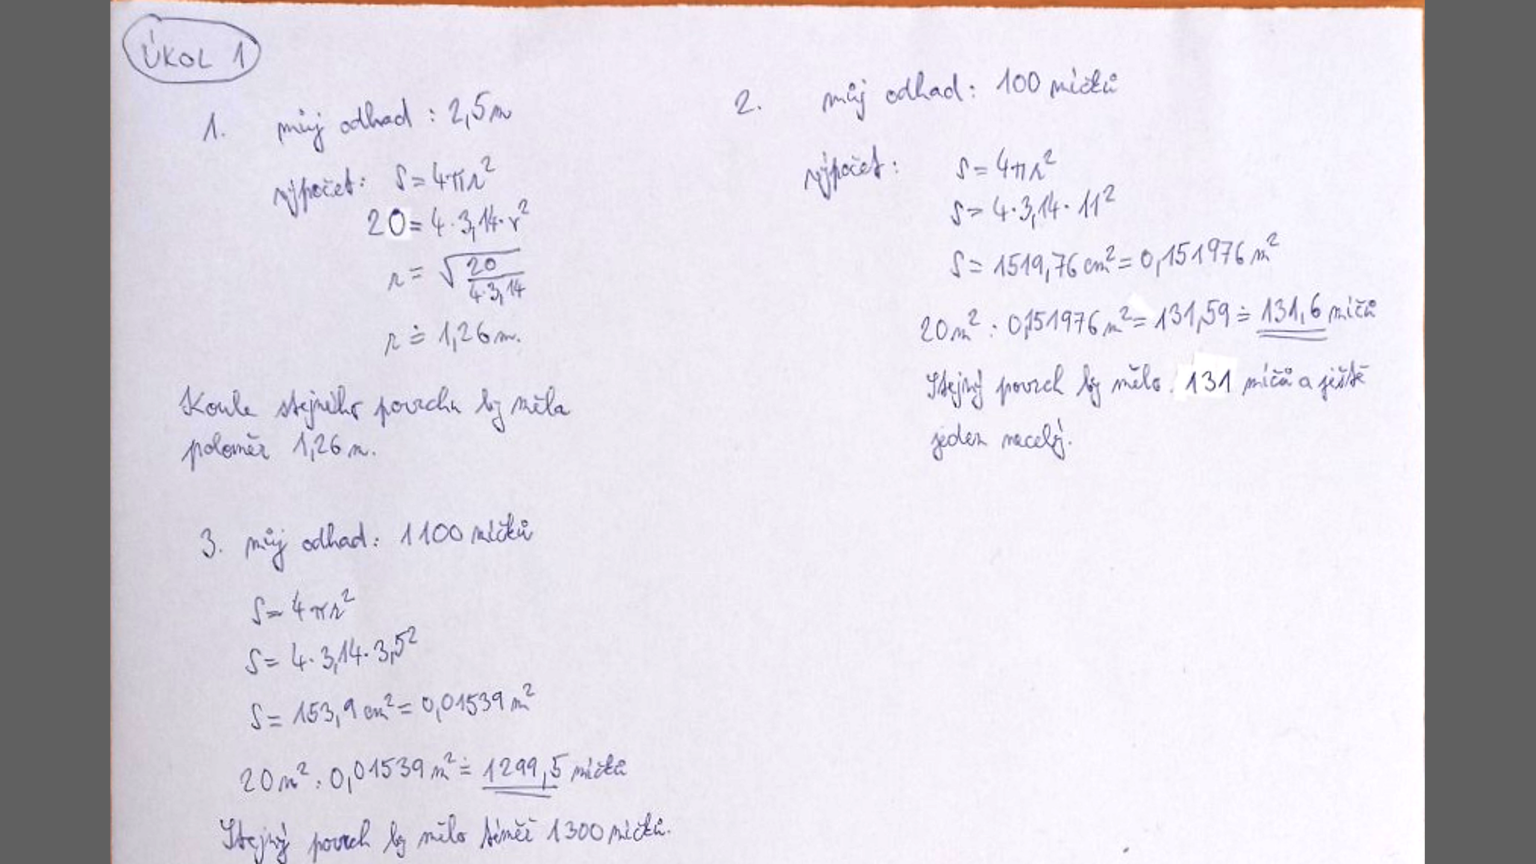 ÚKOL 1
1. můj odhad : 2,5 m
výpočet: S = 4πr²
20 = 4·3,14·r²
r = √20/4·3,14
r ≐ 1,26 m.
Koule stejného povrchu by měla
poloměr 1,26 m.
2. můj odhad: 100 míčků
výpočet: S = 4πr²
S = 4·3,14·11²
S = 1519,76 cm² = 0,151976 m²
20 m² : 0,151976 m² = 131,59 ≐ 131,6 míčů
Stejný povrch by mělo 131 míčů a ještě
jeden necelý.
3. můj odhad: 1100 míčků
S = 4πr²
S = 4·3,14·3,5²
S = 153,9 cm² = 0,01539 m²
20 m² : 0,01539 m² ≐ 1299,5 míčků
Stejný povrch by mělo téměř 1300 míčků.